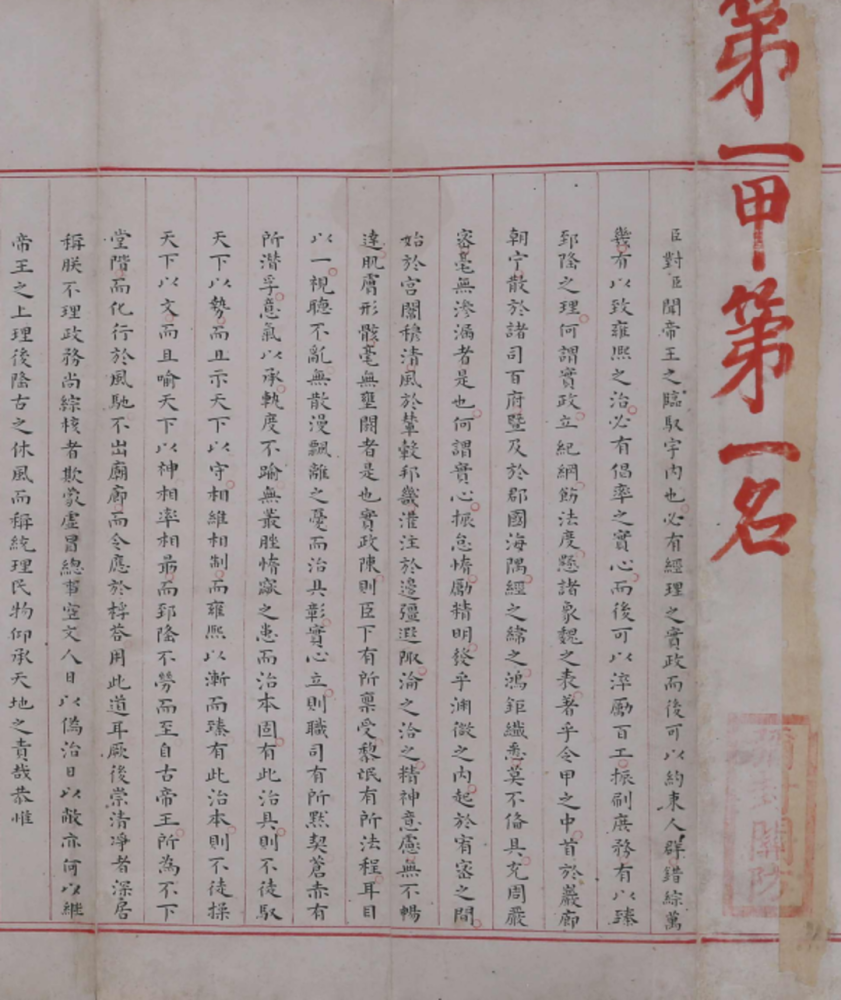 第一甲第一名
臣對臣聞帝王之臨馭宇內也必有經理之實政而後可以約束人群錯綜萬
幾有以致雍熙之治必有倡率之實心而後可以淬勵百工振刷庶務有以臻
郅隆之理何謂實政立紀綱飭法度懸諸象魏之表著乎令甲之中首於巖廊
朝宁散於諸司百府暨及於郡國海隅經之緯之鴻鉅纖悉莫不備具充周嚴
密毫無滲漏者是也何謂實心振怠惰勵精明發乎淵微之內起於宥密之間
始於宮闈穆清風於輦轂邦畿灌注於邊疆遐陬淪之洽之精神意慮無不暢
達肌膚形骸毫無壅閼者是也實政陳則臣下有所稟受黎氓有所法程耳目
以一視聽不亂無散漫飄離之憂而治具彰實心立則職司有所默契蒼赤有
所潛孚意氣以承軌度不踰無叢脞惰窳之患而治本固有此治具則不徒馭
天下以勢而且示天下以守相維相制而雍熙以漸而臻有此治本則不徒操
天下以文而且喻天下以神相率相勗而郅隆不勞而至自古帝王所為不下
堂階而化行於風馳不出廟廊而令應於桴荅用此道耳厥後崇清凈者深居
稱朕不理政務尚綜核者欺蒙虛冒總事空文人日以偽治日以敝亦何以繼
帝王之上理後隆古之休風而稱統理民物仰承天地之責哉恭惟
彌封關防